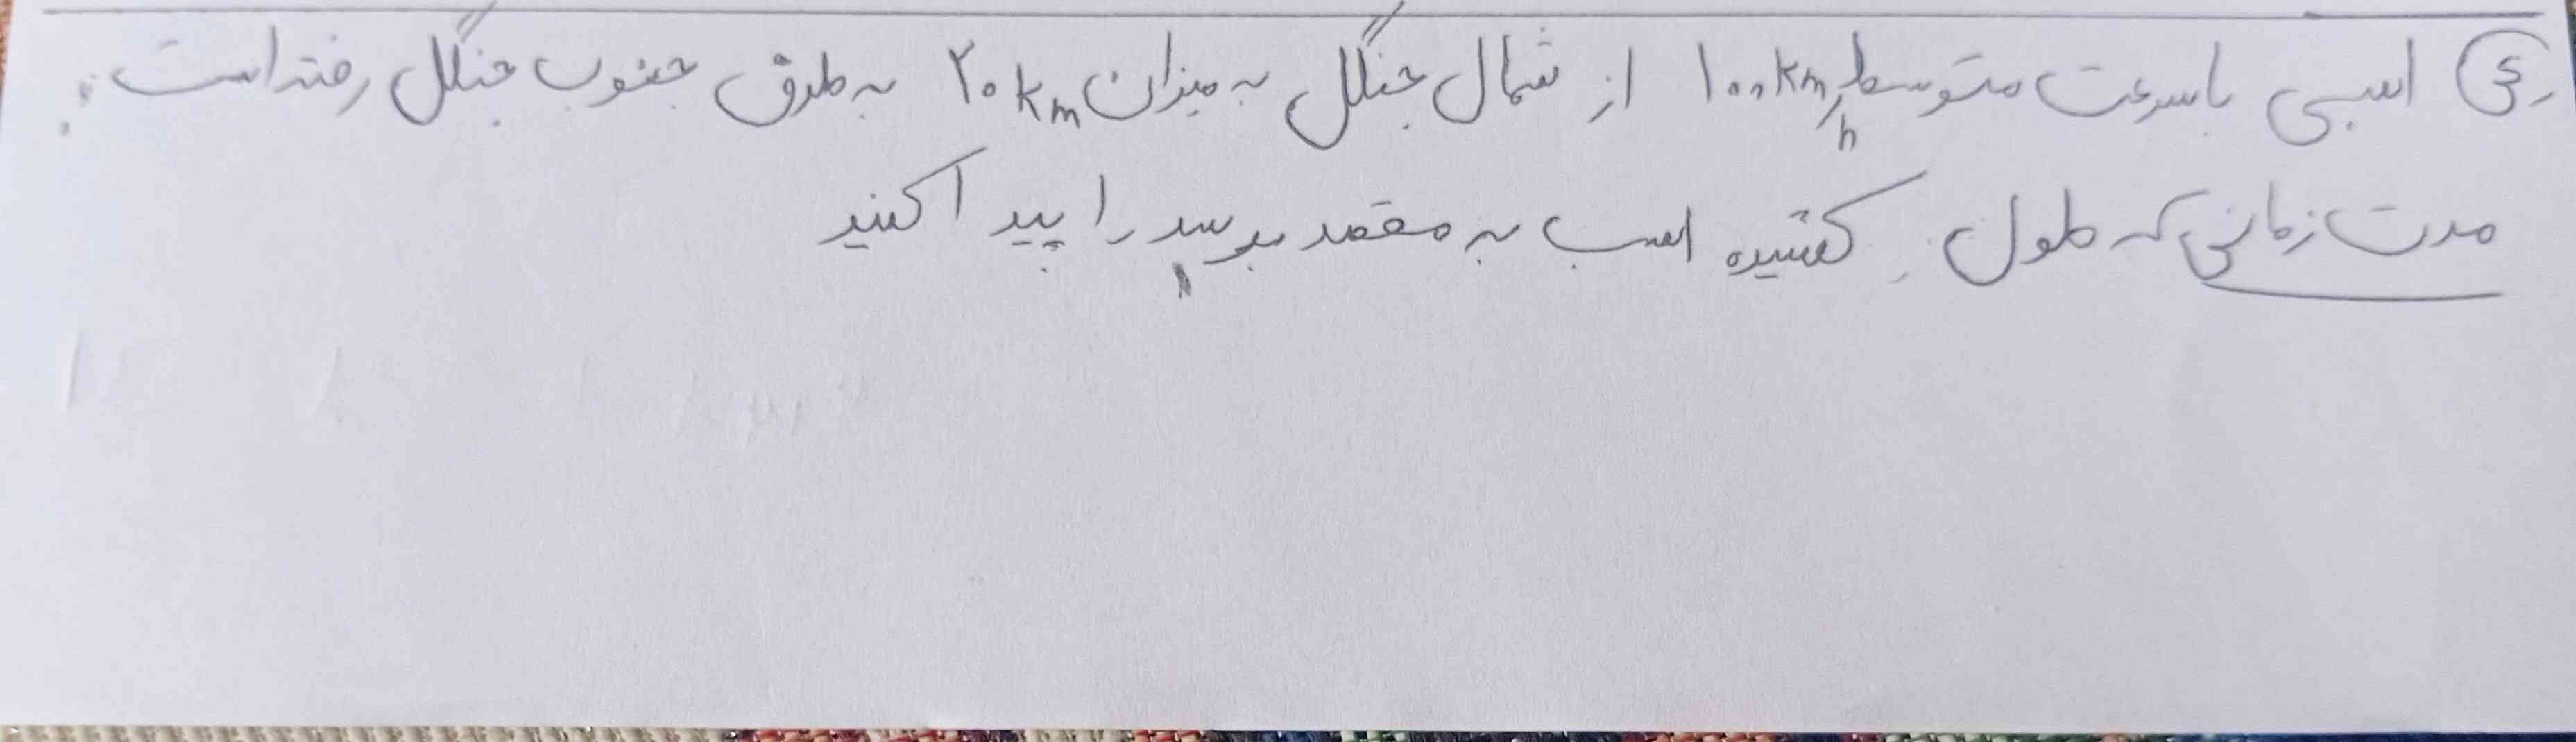 ی) اسبی با سرعت متوسط ۱۰۰km/h از شمال جنگل به میزان ۲۰km به طرف جنوب جنگل رفته است:
مدت زمانی که طول کشیده اسب به مقصد برسد را پیدا کنید